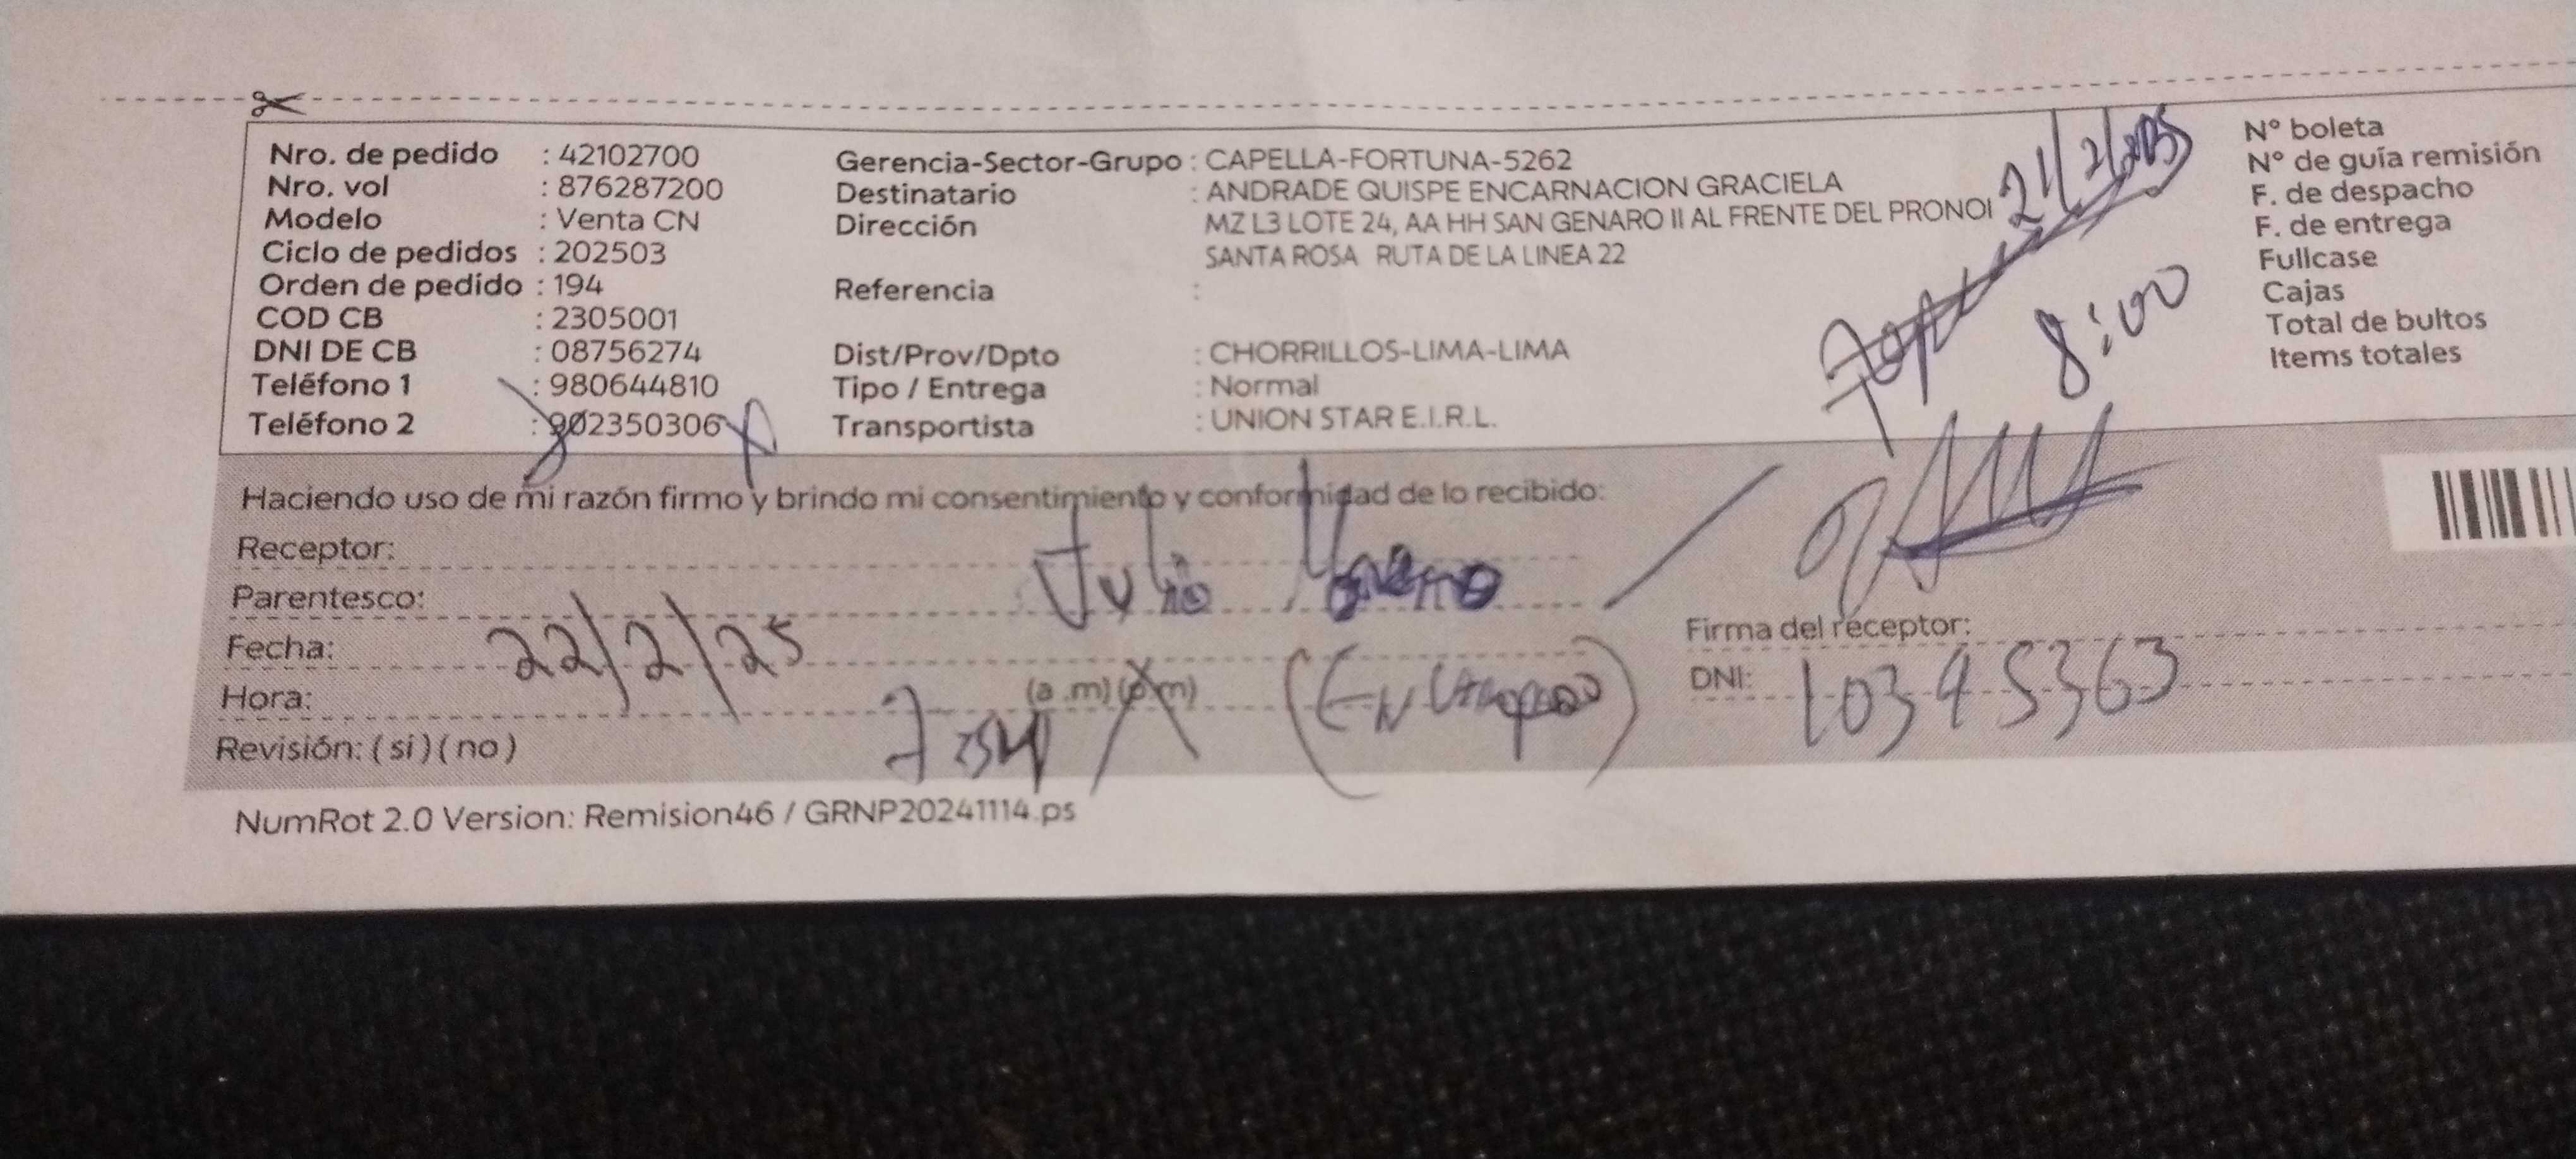 Nro. de pedido : 42102700
Nro. vol : 876287200
Modelo : Venta CN
Ciclo de pedidos : 202503
Orden de pedido : 194
COD CB : 2305001
DNI DE CB : 08756274
Teléfono 1 : 980644810
Teléfono 2 : 902350306
Gerencia-Sector-Grupo : CAPELLA-FORTUNA-5262
Destinatario : ANDRADE QUISPE ENCARNACION GRACIELA
Dirección MZ L3 LOTE 24, AA HH SAN GENARO II AL FRENTE DEL PRONOI
SANTA ROSA RUTA DE LA LINEA 22
Referencia :
Dist/Prov/Dpto : CHORRILLOS-LIMA-LIMA
Tipo / Entrega : Normal
Transportista : UNION STAR E.I.R.L.
21/2/2025
8:00
N° boleta
N° de guía remisión
F. de despacho
F. de entrega
Fullcase
Cajas
Total de bultos
Items totales
Haciendo uso de mi razón firmo y brindo mi consentimiento y conformidad de lo recibido:
Receptor:
Parentesco: Julio
Fecha: 22/2/25
Hora: (a.m) (p.m)
Revisión: (si) (no)
Firma del receptor:
DNI: 10345363
NumRot 2.0 Version: Remision46 / GRNP20241114.ps